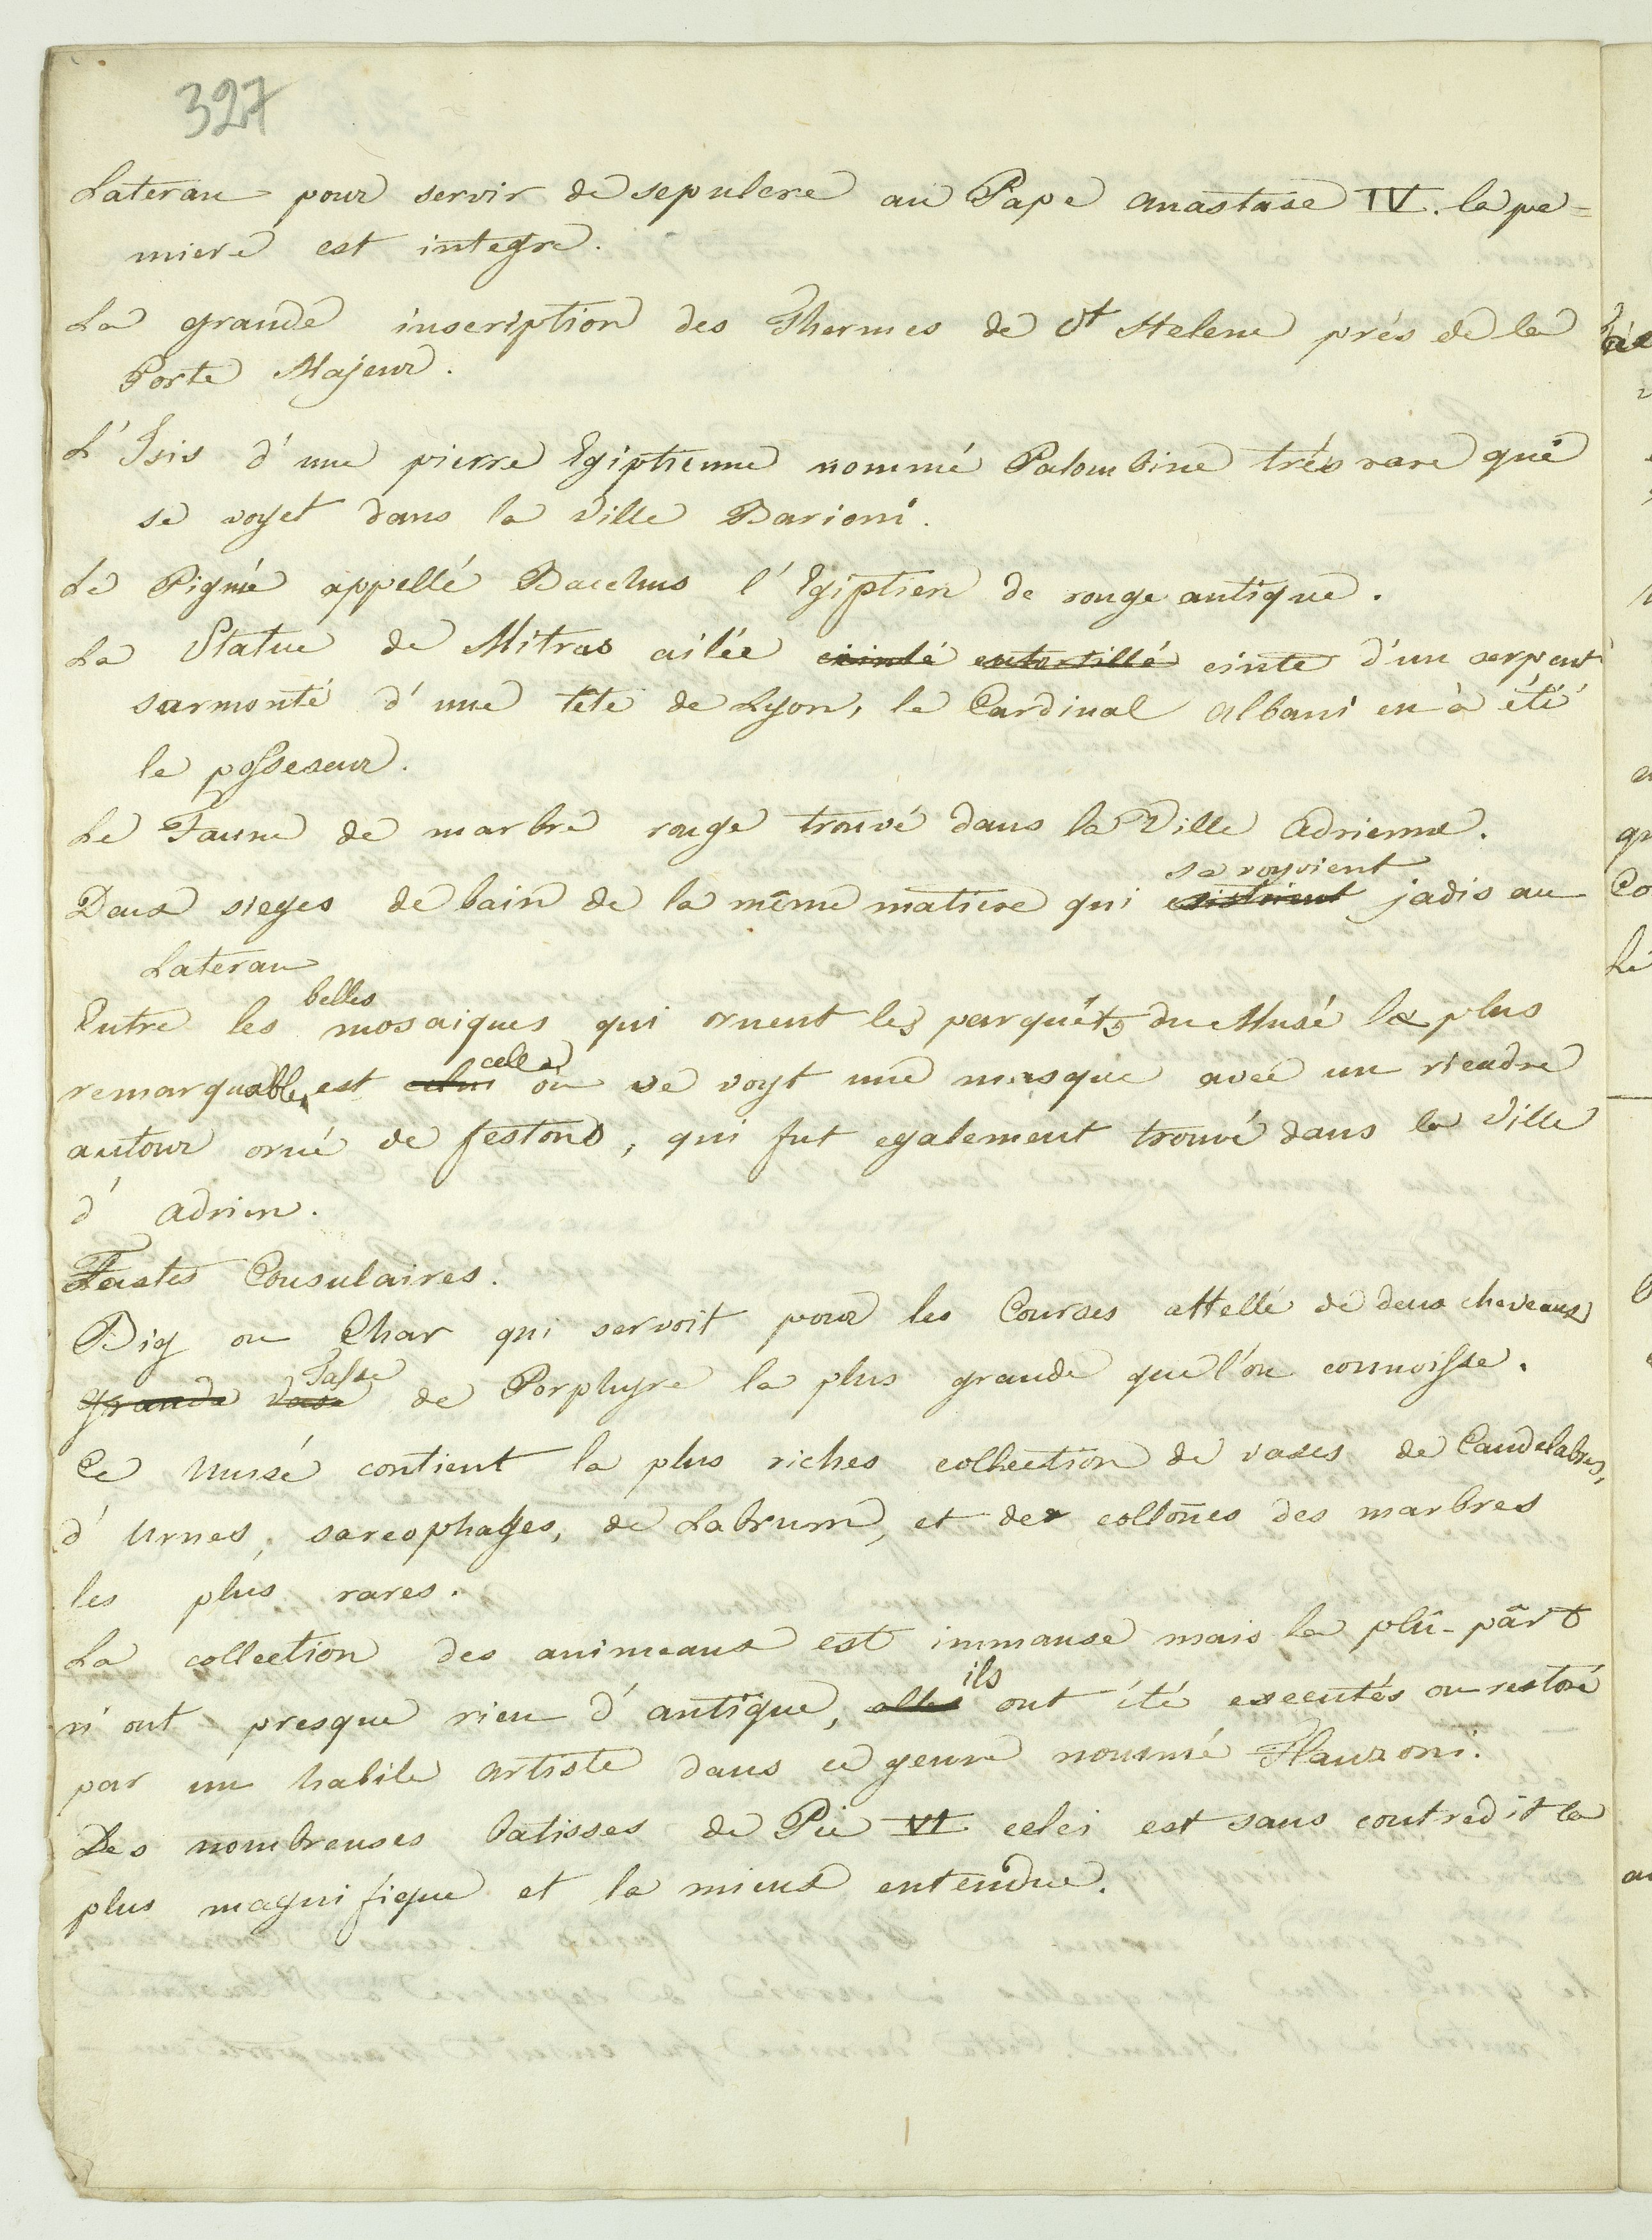 327
Lateran pour servir de sepulcre au Pape Anastase IV. la pe=
miere est integre.
La grande inscription des Thermes de St Helene prés de la
Porte Majeur.
L'Isis d'une pierre Egiptienne nommé Palombine trés rare qui
se voyet dans la Ville Barioni.
Le Pigmé appellé Bacchus l'Egiptien de rouge antique.
La Statue de Mitras ailée entortillé cinte d'un serpent
surmonté d'une tête de Lyon, le Cardinal Albani en à été
le posseseur.
Le Faune de marbre rouge trouvé dans la Ville Adrienne.
se voyoient
Deux sieges de bain de la même matiere qui existoient jadis au
Lateran
belles
Entre les mosaiques qui ornent les parquéts du Musé la plus
celle
remarquable est celui où se voyt une masque avec un
autour orné de festons, qui fut egalement trouvé dans la Ville
d'Adrien.
Fastes Consulaires.
Big ou Char qui servoit pour les Courses attellé de deux cheveaux
Tasse
Grande Vase de Porphyre la plus grande que l'on connoisse.
Ce Musé contient la plus riches collection de vases de Candelabres,
d'Urnes, sarcophages, de Labrum, et des collones des marbres
les plus rares.
La collection des animeaux est immanse mais la plû-pârt
ils
n'ont presque rien d'antique, elles ont été executés ou restoré
par un habile Artiste dans ce genre nommé Flanzoni.
Des nombreuses batisses de Pie VI celci est sans contredit la
plus magnifique et la mieux entendue.